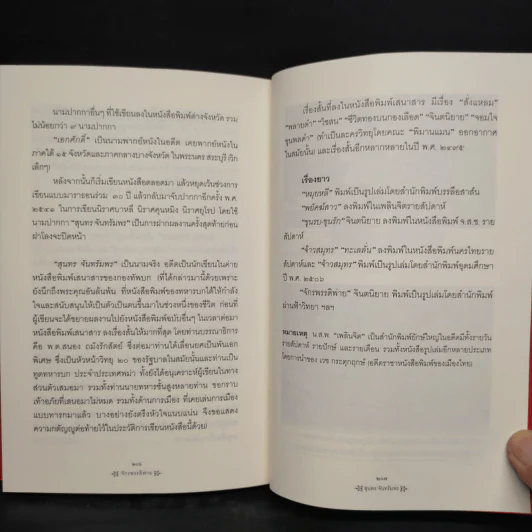 นามปากกาอื่นๆ ที่ใช้เขียนลงในหนังสือพิมพ์ต่างจังหวัด รวม
ไม่น้อยกว่า ๙ นามปากกา
"เอกศักดิ์" เป็นนามพากย์หนังในอดีต เคยพากย์หนังใน
ภาคใต้ ๑๕ จังหวัดและภาคกลางบางจังหวัด ในพระนคร สระบุรี (วิก
เล็กๆ)
หลังจากนั้นก็เริ่มเขียนหนังสือตลอดมา แล้วหยุดเว้นช่วงการ
เขียนแบบมาราธอนร่วม ๓๐ ปี แล้วกลับมาจับปากกาอีกครั้ง พ.ศ.
๒๕๔๑ ในการเขียนนิราศบาหลี นิราศคุนหมิง นิราศยุโรป โดยใช้
นามปากกา "สุนทร จันทรัมพร" เป็นการฝากผลงานครั้งสุดท้ายก่อน
ฝาโลงจะปิดหน้า
"สุนทร จันทรัมพร" เป็นนามจริง อดีตเป็นนักเขียนในค่าย
หนังสือพิมพ์เสนาสารของกองทัพบก (ที่ได้กล่าวมานี้ด้วยเพราะ
ยังนึกถึงพระคุณอันล้นพ้น ที่หนังสือพิมพ์ของทหารบกได้ให้กำลัง
ใจและสนับสนุนให้เป็นตัวเป็นตนขึ้นมาในช่วงหนึ่งของชีวิต ก่อนที่
ผู้เขียนจะได้ขยายผลงานไปยังหนังสือพิมพ์ฉบับอื่นๆ ในเวลาต่อมา
หนังสือพิมพ์เสนาสาร ลงเรื่องสั้นให้มากที่สุด โดยท่านบรรณาธิการ
คือ พ.ต.สนอง ถมังรักสัตว์ ซึ่งต่อมาท่านได้เลื่อนยศเป็นพันเอก
พิเศษ ซึ่งเป็นหัวหน้าวิทยุ ๒๐ ของรัฐบาลในสมัยนั้นและท่านเป็น
ทูตทหารบก ประจำประเทศพม่า ทั้งยังได้อนุเคราะห์ผู้เขียนในทาง
ส่วนตัวเสมอมา รวมทั้งท่านนายทหารชั้นสูงหลายท่าน ขอกราบ
เท้าอภัยที่เสนอมาไม่หมด รวมทั้งด้านการเมือง ที่เคยเล่นการเมือง
แบบทารกมาแล้ว บางอย่างยังตรึงหัวใจแนบแน่น จึงขอแสดง
ความกตัญญูต่อท้ายไว้ในประวัติการเขียนหนังสือนี้ด้วย)
จักรพรรดิพ่าย
เรื่องสั้นที่ลงในหนังสือพิมพ์เสนาสาร มีเรื่อง "สั่งแหลม"
"พลายดำ" "ไซสน" "ชีวิตทองบนกองเลือด" "จินตนิยาย" "จอมใจ
ขุนพลดำ" (ทำเป็นละครวิทยุโดยคณะ "พิมานแมน" ออกอากาศ
ในสมัยนั้น) และเรื่องสั้นอีกหลากหลายในปี พ.ศ. ๒๔๙๕
เรื่องยาว
"หมูยหลี" พิมพ์เป็นรูปเล่มโดยสำนักพิมพ์บรรลือสาสน์
"พยัคฆ์สาว" ลงพิมพ์ในเพลินจิตรายสัปดาห์
"รุนรบ-รุนรัก" จินตนิยาย ลงพิมพ์ในหนังสือพิมพ์ จ.ส.ช. ราย
สัปดาห์
"จ้าวสมุทร" "ทะเลคลั่ง" ลงพิมพ์ในหนังสือพิมพ์นครไทยราย
สัปดาห์และ "จ้าวสมุทร" พิมพ์เป็นรูปเล่มโดยสำนักพิมพ์อุดมศึกษา
ปี พ.ศ. ๒๕๐๖
"จักรพรรดิพ่าย" จินตนิยาย พิมพ์เป็นรูปเล่มโดยสำนักพิมพ์
ม่านฟ้าวิทยา ฯลฯ
หมายเหตุ น.ส.พ. "เพลินจิต" เป็นสำนักพิมพ์ยักษ์ใหญ่ในอดีตมีทั้งรายวัน
รายสัปดาห์ รายปักษ์ และรายเดือน รวมทั้งหนังสือรูปเล่มอีกหลายประเภท
โดยการนำของ เวช กระตุฤกษ์ (อดีตราชาหนังสือพิมพ์ของเมืองไทย)
สุนทร จันทรัมพร